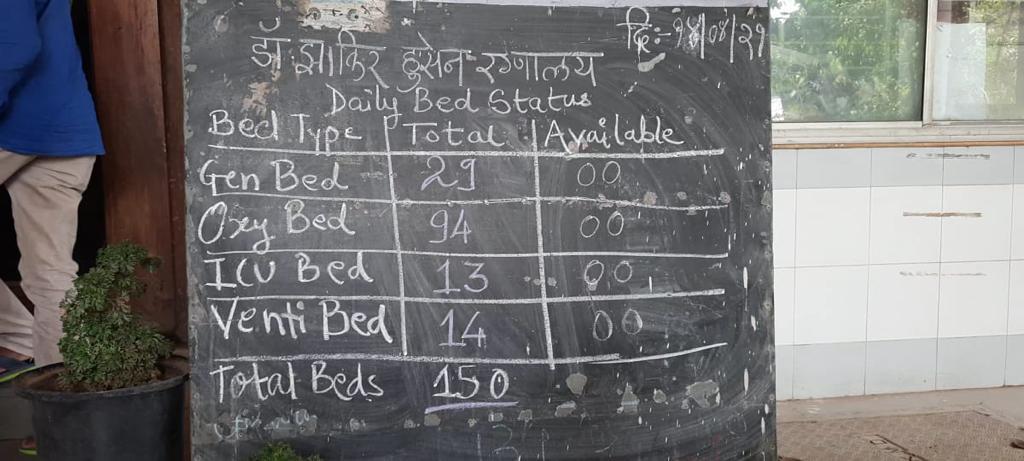 दि:- १४/०४/२१
डॉ. झाकिर हुसेन रुग्णालय
Daily Bed Status
Bed Type Total Available
Gen Bed 29 00
Oxy Bed 94 00
ICU Bed 13 00
Venti Bed 14 00
Total Beds 150